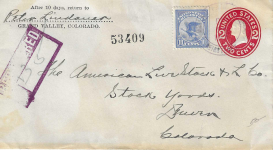 After 10 days, return to
Peter Lindauer
GRAND VALLEY, COLORADO.
53409
UNITED STATES
TWO CENTS
The American Live Stock & L. Co.
Stock Yards.
Denver
Colorado